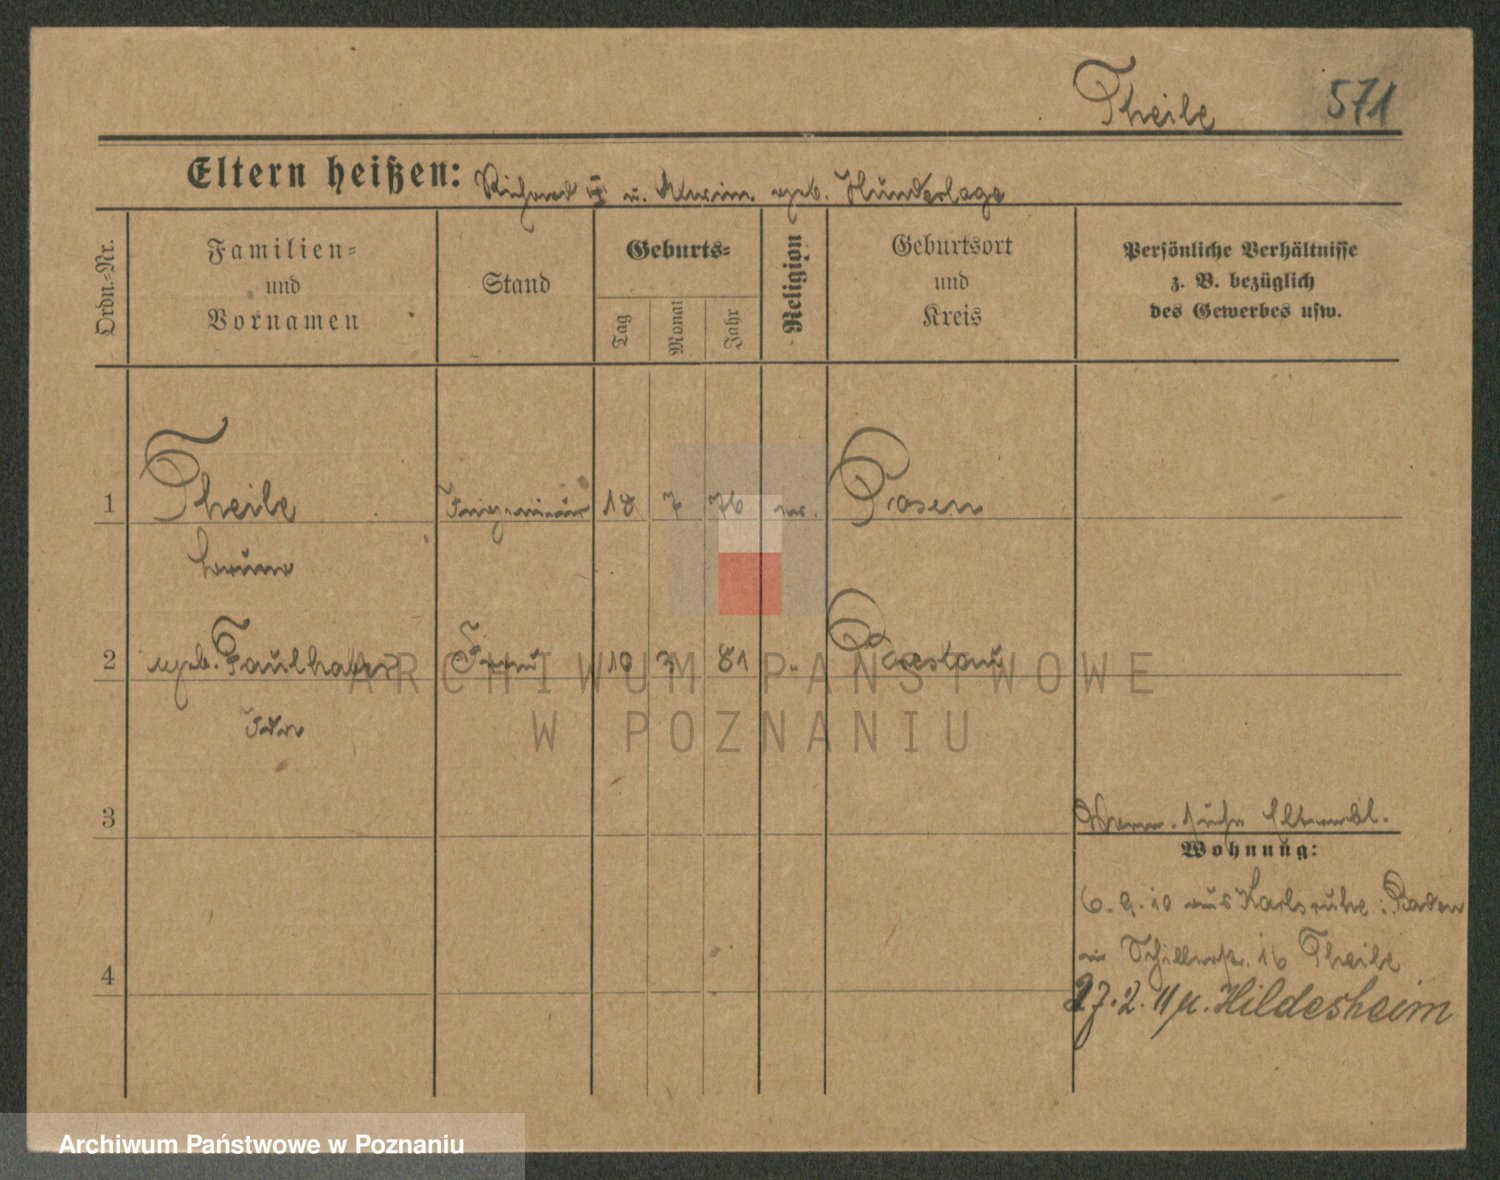 Theile 571
Eltern heißen: Richard u. geb. Hünderlage
Ordn.-Nr.
Familien-
und
Vornamen
Stand
Geburts-
Tag
Monat
Jahr
Religion
Geburtsort
und
Kreis
Persönliche Verhältnisse
z. B. bezüglich
des Gewerbes usw.
1 Theile Ingenieur 18 7 76 ev. Posen
Bruno
2 geb. Faulhaber Frau 19 3 81 " Breslau
Ida
3
siehe
Wohnung:
6. 9. 10 aus Karlsruhe i. Baden
4
Schillerstr. 16 Theile
27. 2. 11 n. Hildesheim
ARCHIWUM PAŃSTWOWE
W POZNANIU
Archiwum Państwowe w Poznaniu